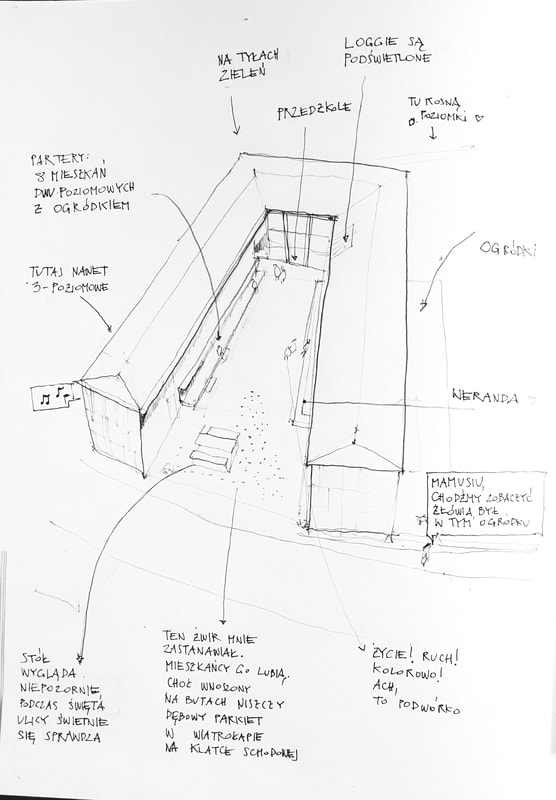 NA TYŁACH
ZIELEŃ
LOGGIE SĄ
PODŚWIETLONE
PRZEDZKOLE
TU ROSNĄ
POZIOMKI ♡
PARTERY:
8 MIESZKAŃ
DWUPOZIOMOWYCH
Z OGRÓDKIEM
OGRÓDKI
TUTAJ NAWET
3-POZIOMOWE
WERANDA
MAMUSIU,
CHODŹMY ZOBACZYĆ
ŻÓŁWIA, BYŁ
W TYM OGRODKU
STÓŁ
WYGLĄDA
NIEPOZORNIE,
PODCZAS ŚWIĘTA
ULICY ŚWIETNIE
SIĘ SPRAWDZA
TEN ŻWIR MNIE
ZASTANAWIAŁ.
MIESZKAŃCY GO LUBIĄ.
CHOĆ WNOSZONY
NA BUTACH NISZCZY
DĘBOWY PARKIET
W WIATROŁAPIE
NA KLATCE SCHODOWEJ
ŻYCIE! RUCH!
KOLOROWO!
ACH,
TO PODWÓRKO